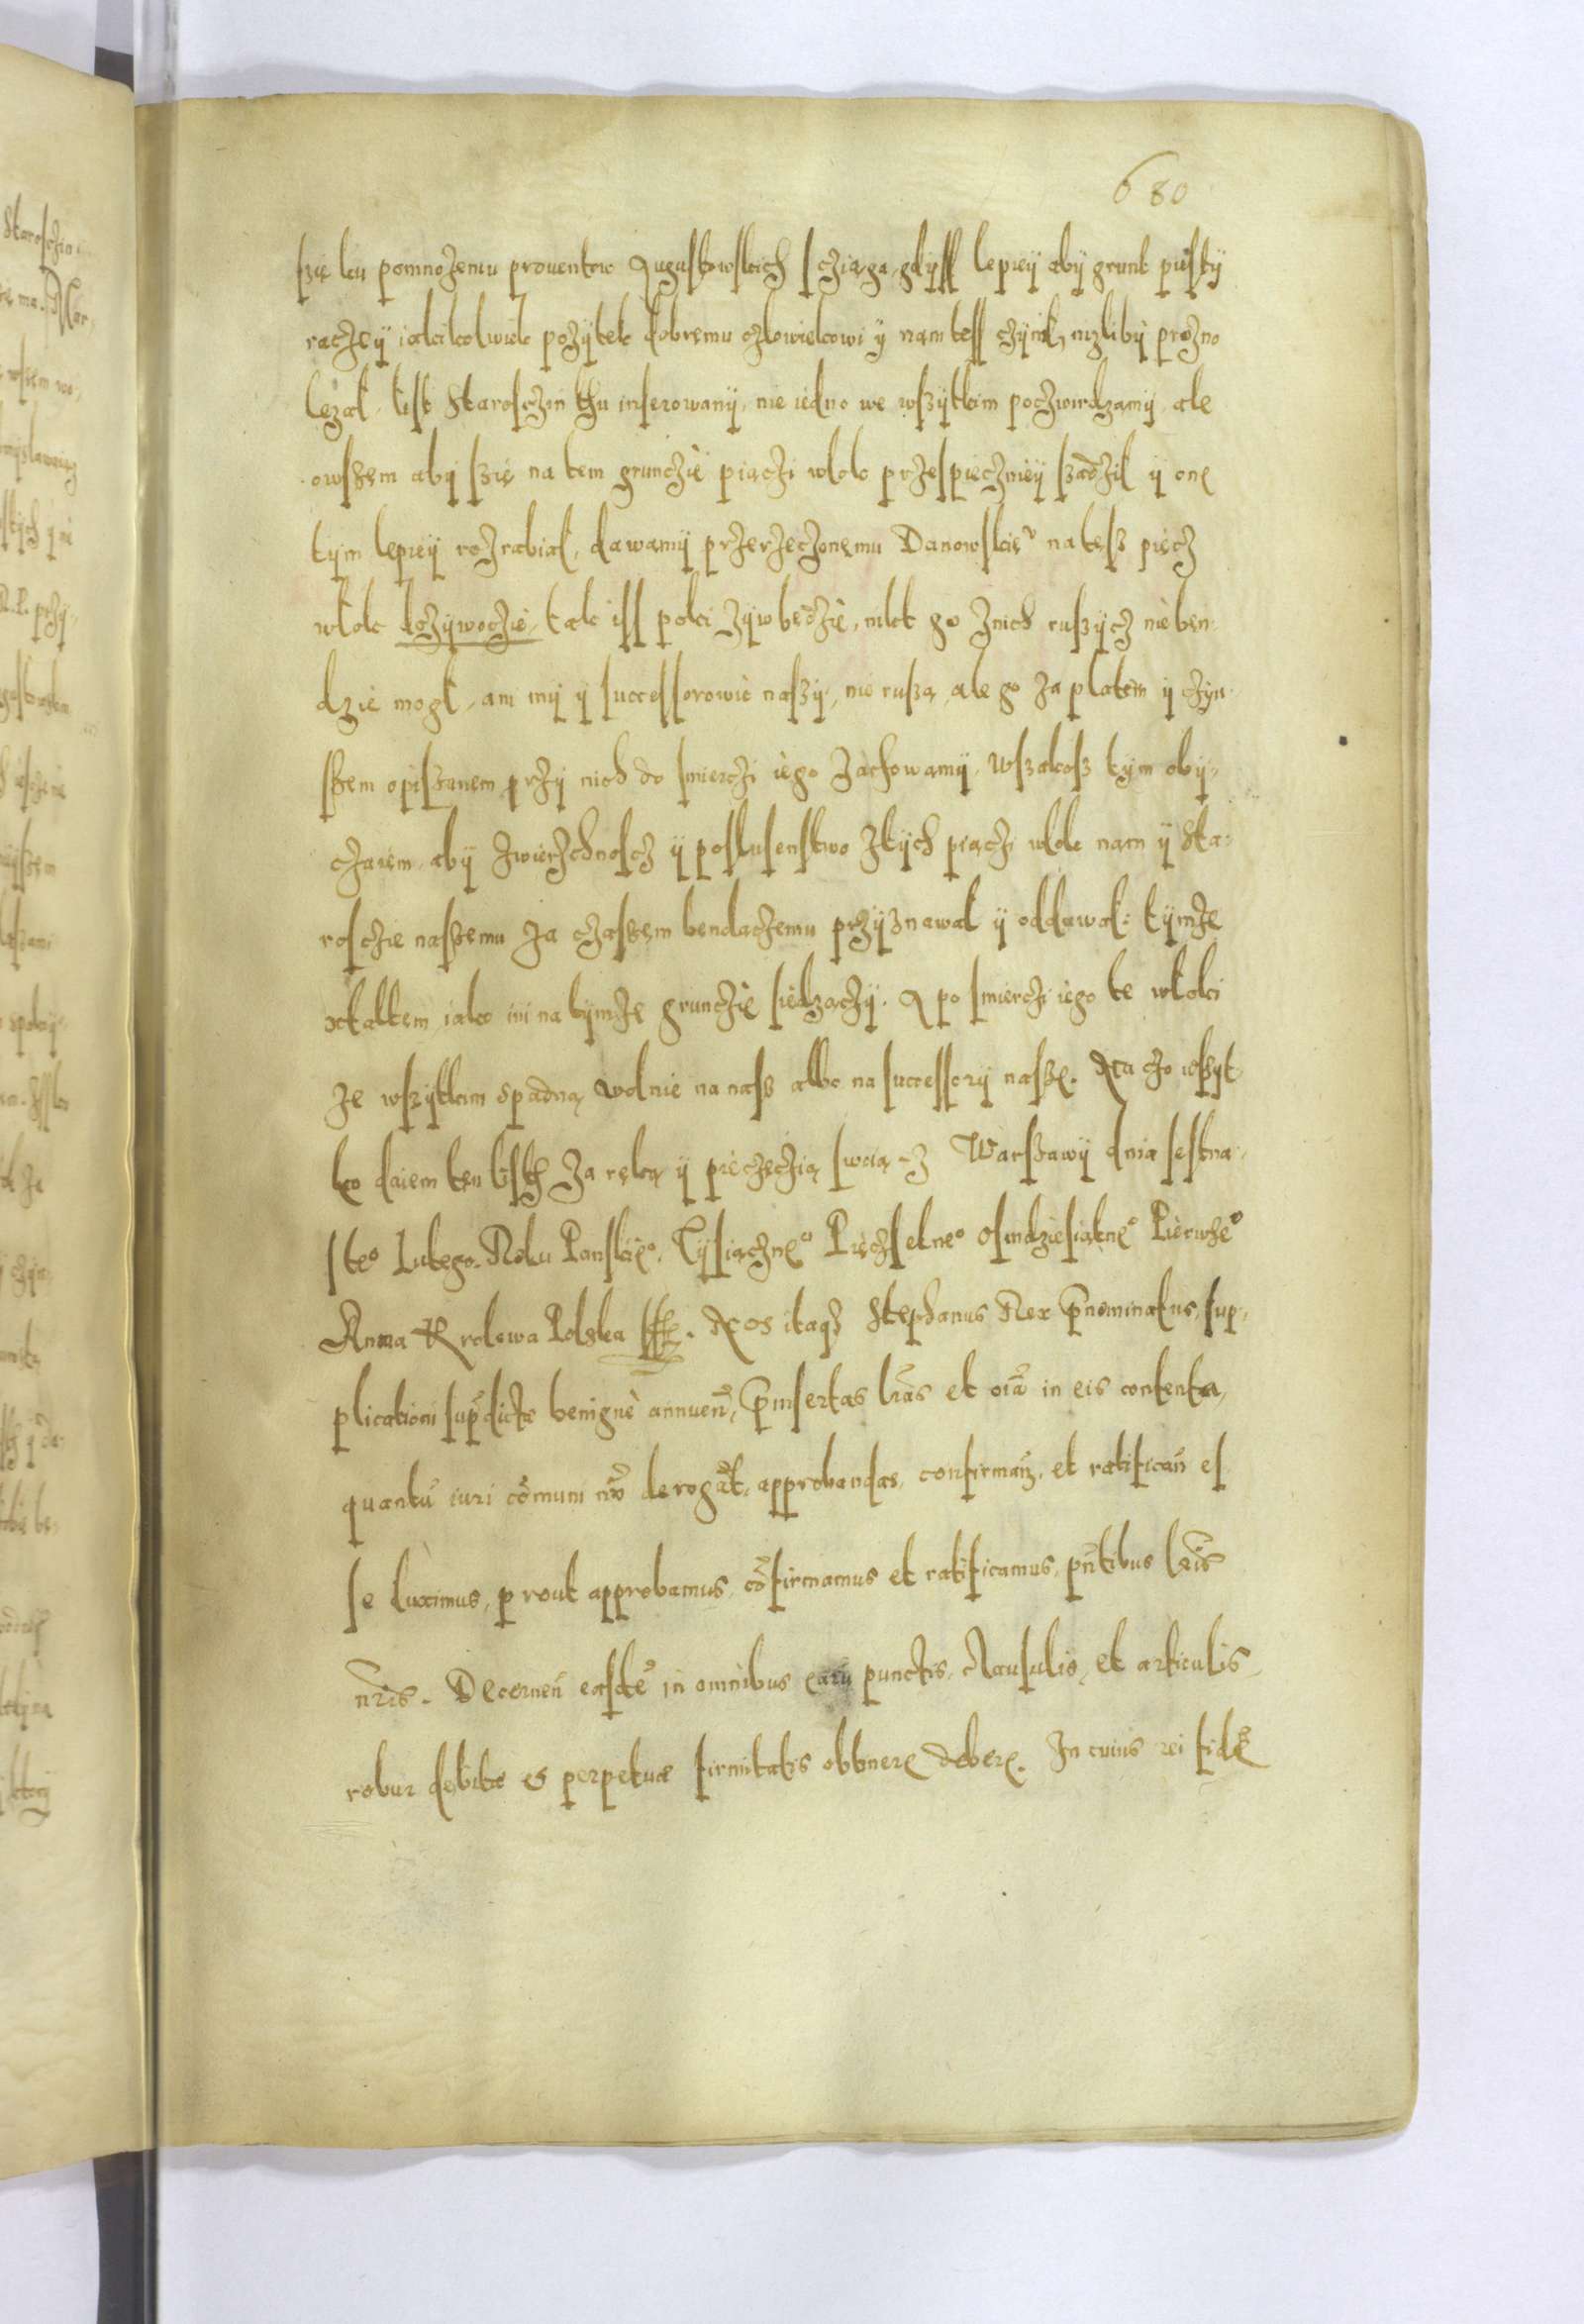 680
szie ku pomnożeniu prouentow Augustowskich sczięga, gdyss lepiey aby grunt pusty
raczey iakikolwiek pożytek dobremu człowiekowi y nam tess czynił, niżliby prożno
leżał. List Starosczin thu inserowany, nie iedno we wszytkim poczwirdzamy, ale
owszem aby szie na tem grunczie piączi włok przespiecznieÿ szadził y one
tym lepieÿ rozrabiał, dawamy przerzeczonemu Danowskieᵘ na tesz pięcz
włok dożywoczie, tak iss poki żyw będzie, nikt go znich ruszycz nie ben-
dzie mogł, ani my y successorowie naszy, nie rusza, ale go za płatem y czyn-
szem opiszanem przy nich do smierczi iego zachowamy. Wszakosz tym oby-
czaiem, aby zwierzchnoscz y poslusenstwo ztych piączi włok nam y Sta-
rosczie naszemu za czaszem bendaczemu przyznawał y oddawał: tymże
xtałtem iako ini na tymże grunczie siedzaczy. A po smierczi iego te włoki
ze wszytkim spadną wolnie na nasz albo na successory nasze. Na czo wszyt-
ko daiem ten listh za ręką y pieczęczią swoią. Z Warszawy dnia sestna-
steº Lutego. Roku Panskieº. Tysiącżneº Pięczsetneº Osmdziesiątneº Pierwszeº
Anna Krolewa Polska sst. Nos itaqz Stephanus Rex p̄nominatus, sup-
plicationi sup̄dictæ benignè annueñ, p̄insertas l̃ras et oı̃a in eis contenta,
quantũ iuri cõmuni nõ derogãt, approbandas, confirmañ, et ratificañ es
se duximus, prout approbamus, cõfirmamus et ratificamus, pñtibus l̃ris
nr̃is. Decerneñ easdẽ in omnibus earũ punctis, clausulis, et articulis
robur debitæ et perpetuæ firmitatis obtinere debere. In cuius rei fidẽ